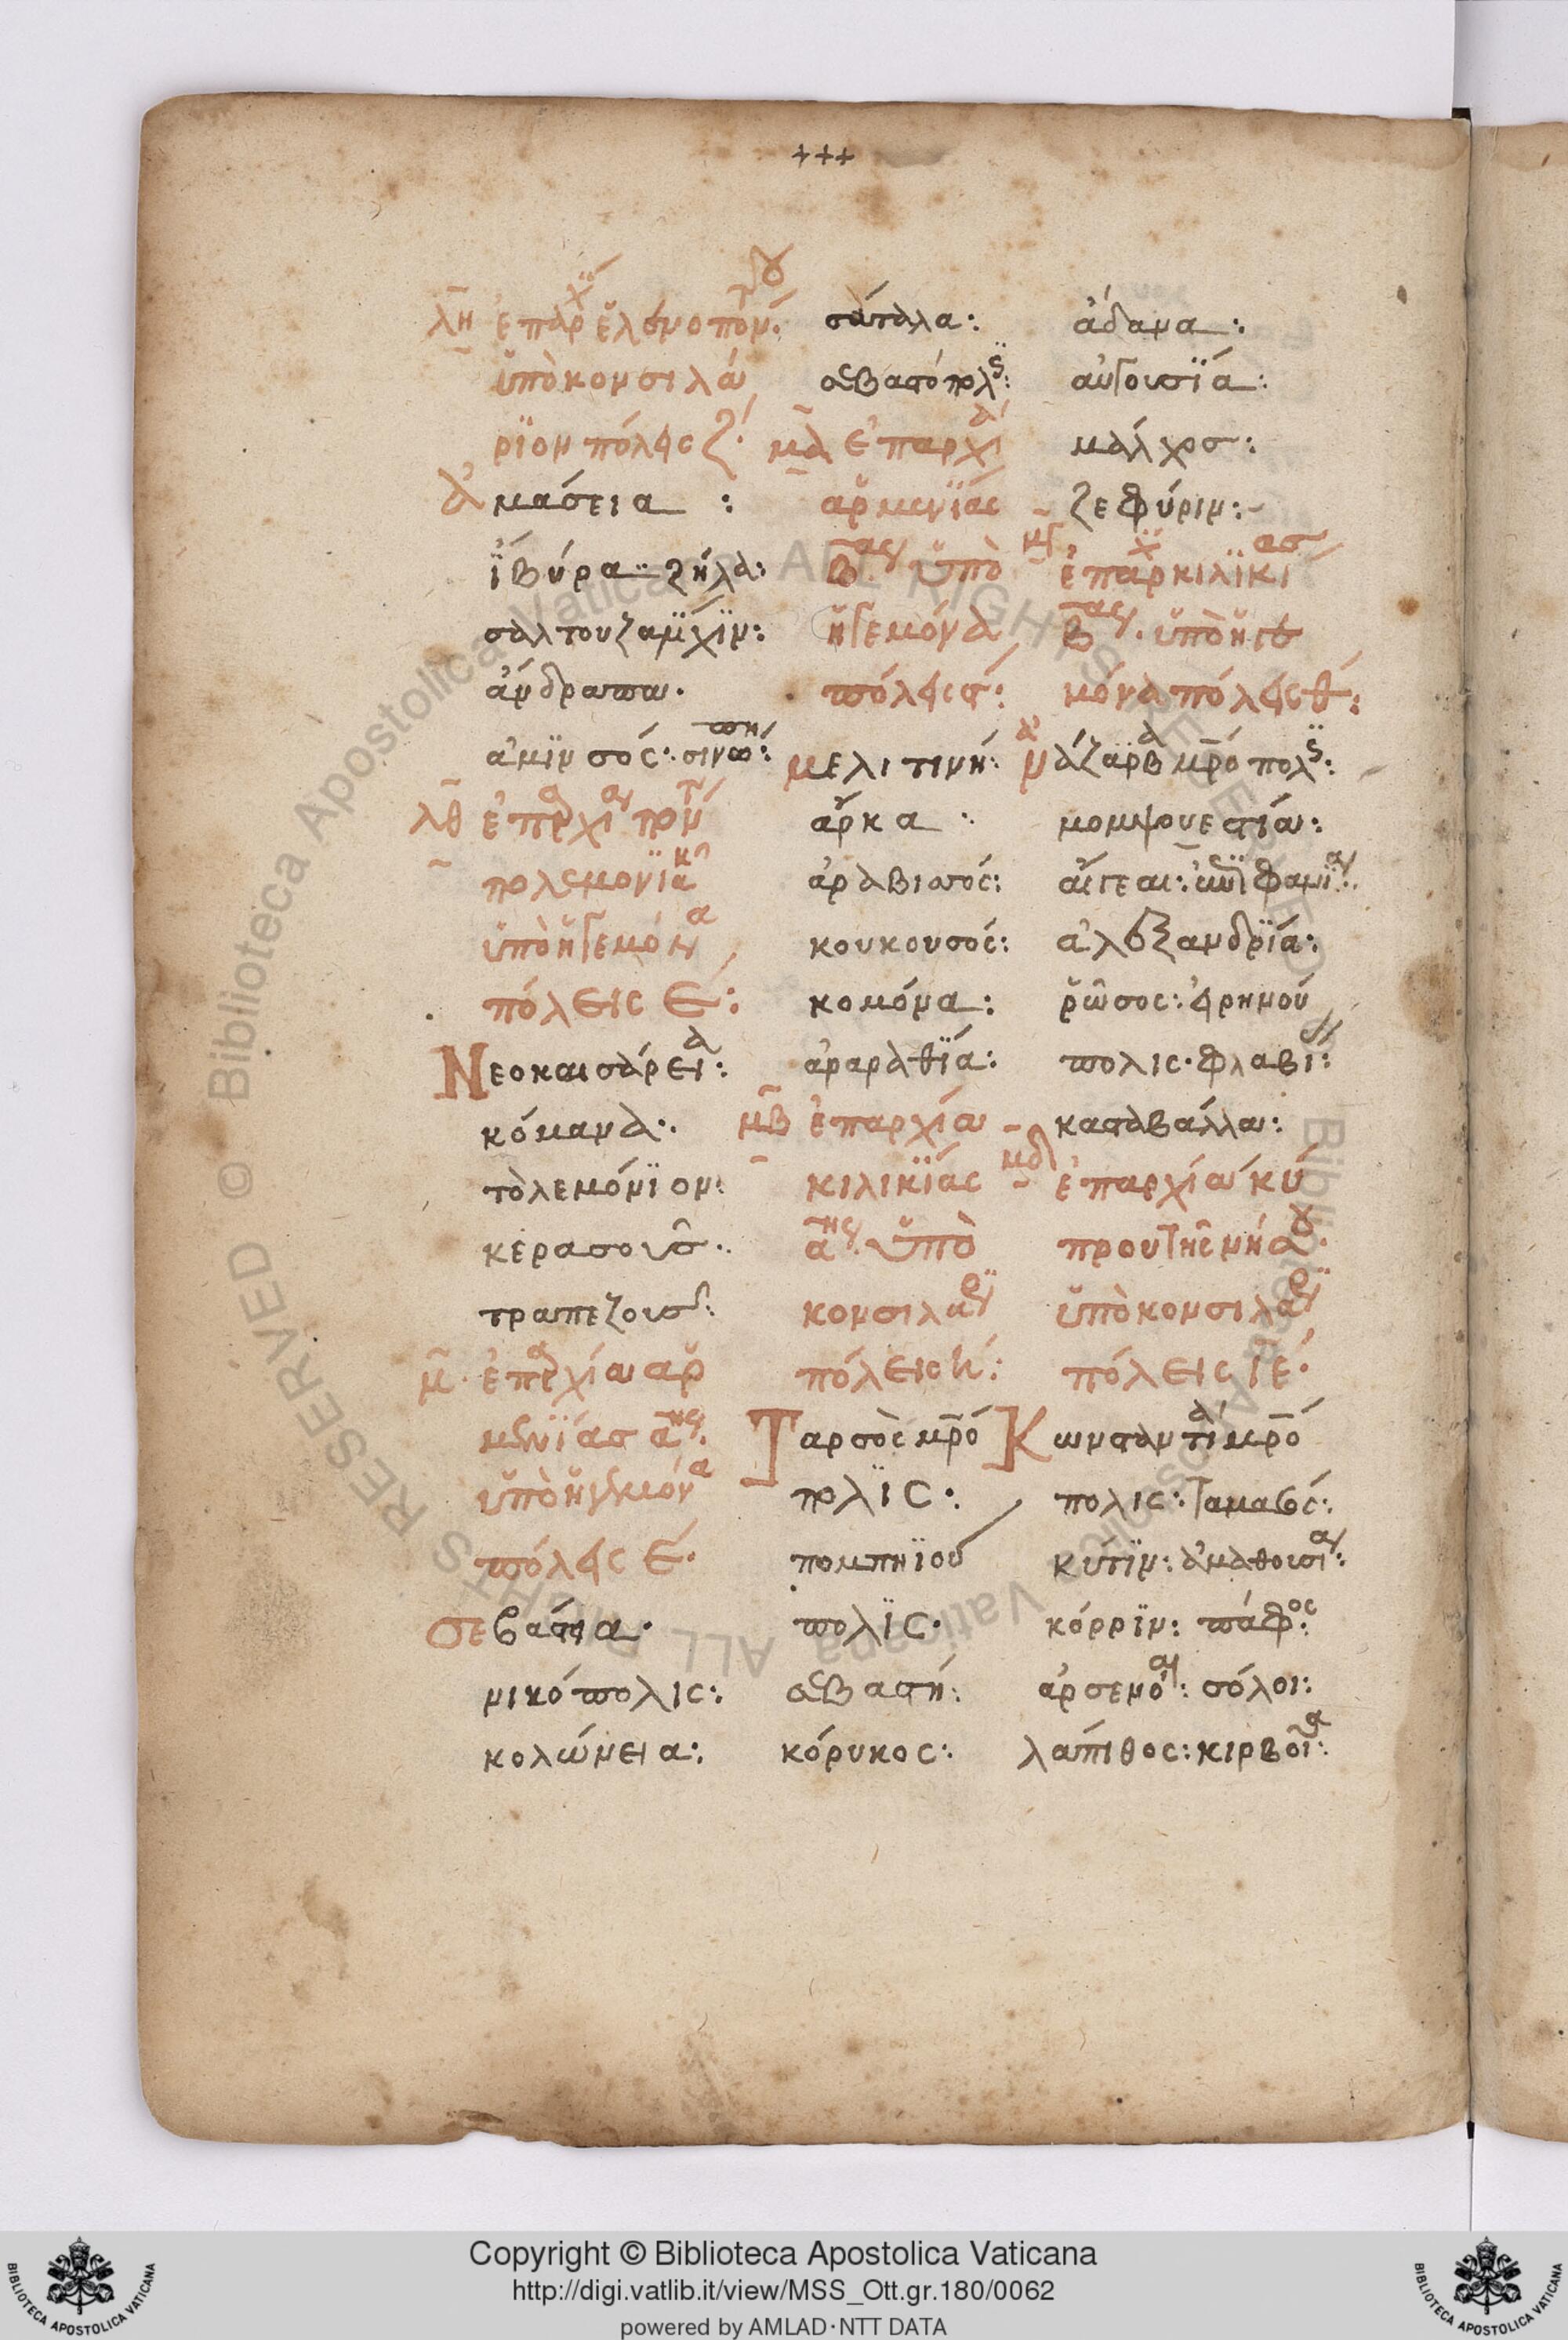 +++
λη ἐπαρχ ἑλενοπόντου
ὑπὸ κονσιλά
ριον πόλεις ζ´
ἀμάσεια :
ἴβύρα·· ζήλα:
σαλτουζαμϊχίϊν:
ἀνδραπα·
ἀμϊνσός: σινώπη:
λθ ἐπαρχία πόντ
πολεμονϊακ
ὑπὸ ἡγεμόνα
πόλεις ε:
Νεοκαισάρεια:
κόμανα:·
πὸλεμόνϊον:
κερασους··
τραπεζους:
μ· ἐπαρχία αρ
μενΐας αης·
ὑπὸ ἡγεμόνα
πόλεις ε·
σεβάστια·
νικόπολις:
κολώνεια:·
σάταλα:
σεβαστόπολις:
μα ἐπαρχία
αρμενΐας
βας ὑπὸ
ἡγεμόνα
πόλεις ϛ:
μελιτινή:
αρκα ·
ἀραβισσός:
κουκουσός:
κομόνα:
ἀραραθΐα:
μβ ἐπαρχία
κιλικΐας
αης· ὑπὸ
κονσιλαρϊ
πόλεις η:
Ταρσὸς μρό
πολϊς·
πομπηϊού
πολϊς·
σεβαστή:
κόρυκος:
ἄδανα:
αὐγουσϊα:
μάλχος:
ζεφύριν:
μγ ἐπαρχ κιλϊκίας
βας· ὑπὸ ἡγε
μόνα πόλεις θ:
ἀνάζαρβα μρό πολϊς:
μομψουεστία:
αἴγεαι: ἐπιφαμία:
ἀλεξανδρΐα:
ῥῶσος: εἰρηνού
πολις· φλαβι:
κασαβάλλα:
μδ ἐπαρχία κύ
πρου τῆς νήσου·
ὑπὸ κονσιλαρϊ
πόλεις ιε·
Κωνσταντία μρό
πολις: ταμασός:
κυτϊν: ἀμαθουσία:
κόρριν: πάφος:
ἀρσενόα: σόλοι:
λάπιθος: κιρβοία:
Copyright © Biblioteca Apostolica Vaticana
http://digi.vatlib.it/view/MSS_Ott.gr.180/0062
powered by AMLAD·NTT DATA